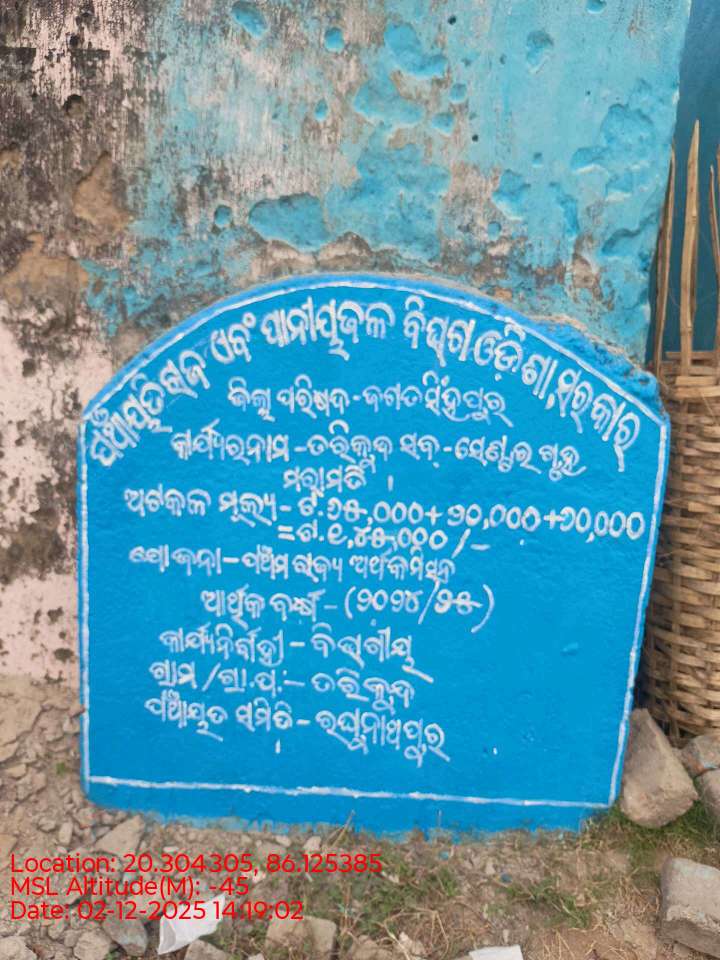 ପଞ୍ଚାୟତିରାଜ ଏବଂ ପାନୀୟଜଳ ବିଭାଗ ଓଡ଼ିଶା,ସରକାର
ଜିଲ୍ଲା ପରିଷଦ-ଜଗତସିଂହପୁର
କାର୍ଯ୍ୟରନାମ -ତରିକୁନ୍ଦ ସବ୍-ସେଣ୍ଟର ଗୃହ
ମରାମତି ।
ଅଟକଳ ମୂଲ୍ୟ- ଟ.୬୫,୦୦୦+ ୨୦,୦୦୦ +୬୦,୦୦୦
=ଟ.୧,୪୫,୦୦୦/-
ଯୋଜନା-ପଞ୍ଚମ ରାଜ୍ୟ ଅର୍ଥକମିସନ
ଆର୍ଥିକ ବର୍ଷ -(୨୦୨୪/୨୫)
କାର୍ଯ୍ୟନିର୍ବାହୀ - ବିଭାଗୀୟ
ଗ୍ରାମ /ଗ୍ରା.ପଂ:- ତରିକୁନ୍ଦ
ପଞ୍ଚାୟତ ସମିତି - ରଘୁନାଥପୁର
Location: 20.304305, 86.125385
MSL Altitude(M): -45
Date: 02-12-2025 14:19:02